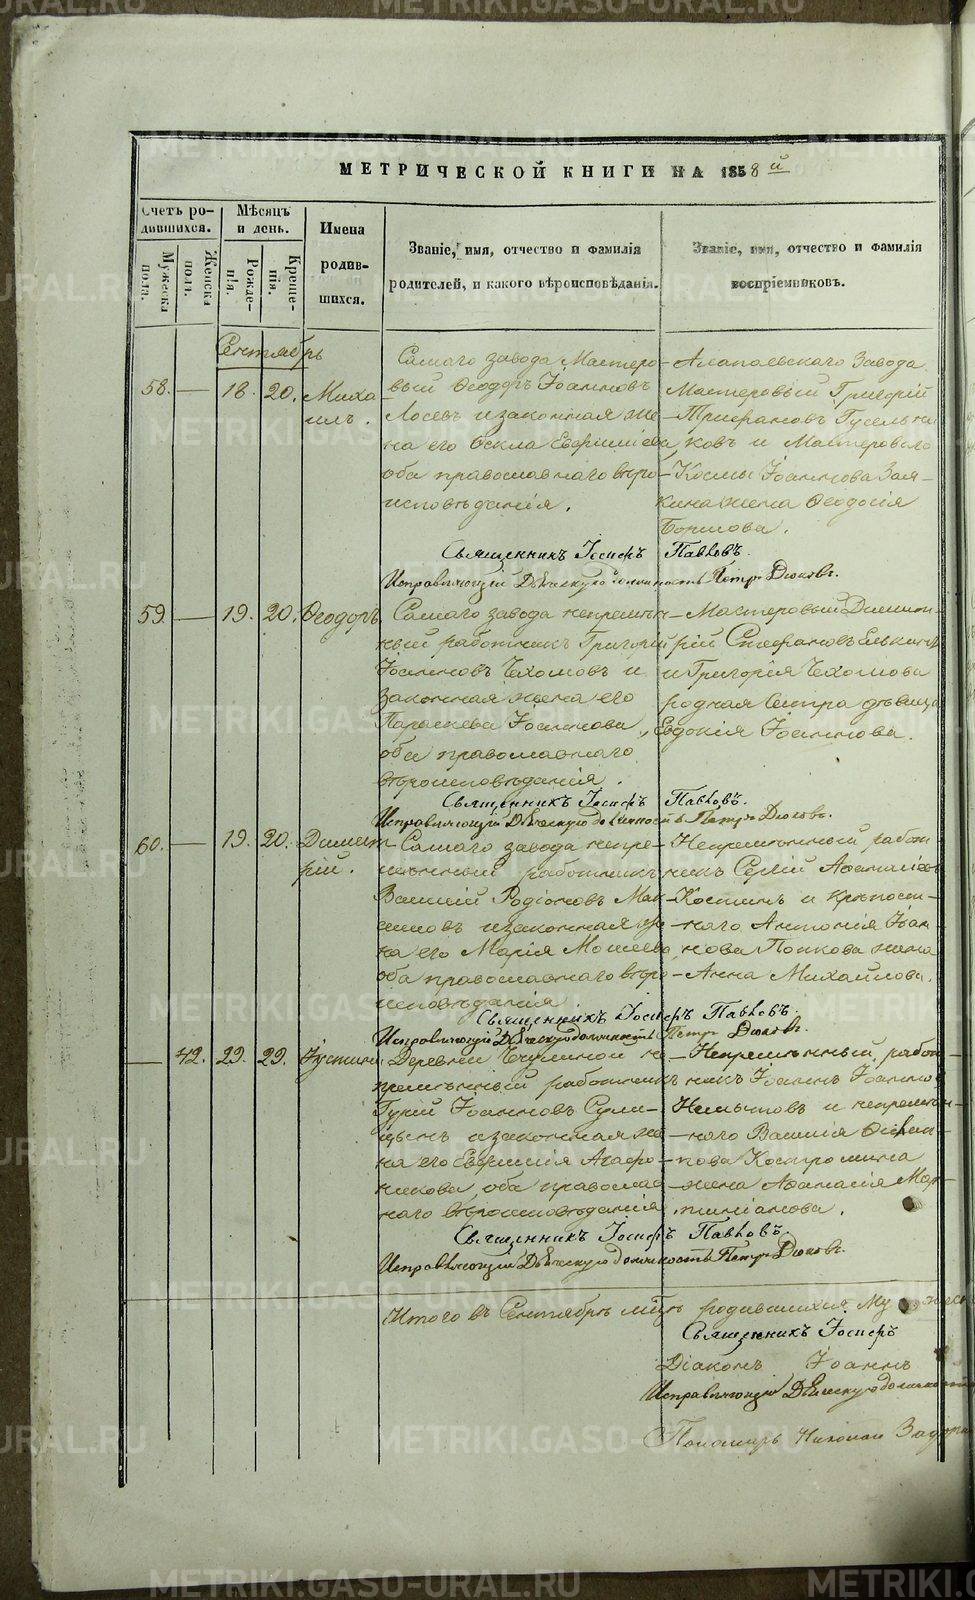 МЕТРИЧЕСКОЙ КНИГИ НА 1858й
Счетъ ро-
дившихся.
Мужеска пола.
Женска пола.
Мѣсяцъ
и день.
Рожде-
нія.
Креще-
нія.
Имена
родив-
шихся.
Званіе, имя, отчество и фамилія
родителей, и какого вѣроисповѣданія.
Званіе, имя, отчество и фамилія
воспріемниковъ.
Сентябрь
58. — 18. 20. Миха-
илъ.
Самаго завода Мастеро-
вый Ѳеодоръ Іоанновъ
Лосевъ и законная же-
на его Ѳекла Евфимiева
оба православнаго вѣро-
исповѣданія.
Алапаевскаго Завода
Мастеровый Григорій
Трифановъ Гусельни-
ковъ и Мастероваго
Космы Іоаннова
жена Ѳеодосія
Священникъ Іосифъ Павловъ.
Исправляющій Дьяческую должность Петръ
59. — 19. 20. Ѳеодоръ.
Самаго завода непремѣн-
ный работникъ Григорій
Іоанновъ Чехомовъ и
законная жена его
Параскева Іоаннова,
оба православнаго
вѣроисповѣданія.
Мастеровый Димит-
рій Стефановъ
и Григорія Чехомова
родная сестра дѣвица
Евдокія Іоаннова.
Священникъ Іосифъ Павловъ.
Исправляющій Дьяческую должность Петръ
60. — 19. 20. Димит-
рій.
Самаго завода непре-
мѣнный работникъ
Василій Родіоновъ Мак-
симовъ и законная же-
на его Марія Моисеева
оба православнаго вѣро-
исповѣданія
Непремѣнный работ-
никъ Сергій Аѳанасіевъ
Костинъ и крѣпост-
наго Антонія Іоан-
нова Попкова жена
Анна Михайлова.
Священникъ Іосифъ Павловъ.
Исправляющій Дьяческую должность Петръ
— 42. 29. 29. Іустина
Деревни не-
премѣнный работникъ
Гурій Іоанновъ
и законная же-
на его Евфимія Агафо-
никова, оба православ-
наго вѣроисповѣданія.
Непремѣнный работ-
никъ Іоаннъ Іоанновъ
Немытовъ и непремѣн-
наго Василія
Костромина
жена Аѳанасія Мар-
тиніанова.
Священникъ Іосифъ Павловъ.
Исправляющій Дьяческую должность Петръ
Итого въ Сентябрѣ мѣсяцѣ родившихся Му
Священникъ Іосифъ
Діаконъ Іоаннъ
Исправляющій Дьяческую должность
Пономарь Николай
METRIKI.GASO-URAL.RU